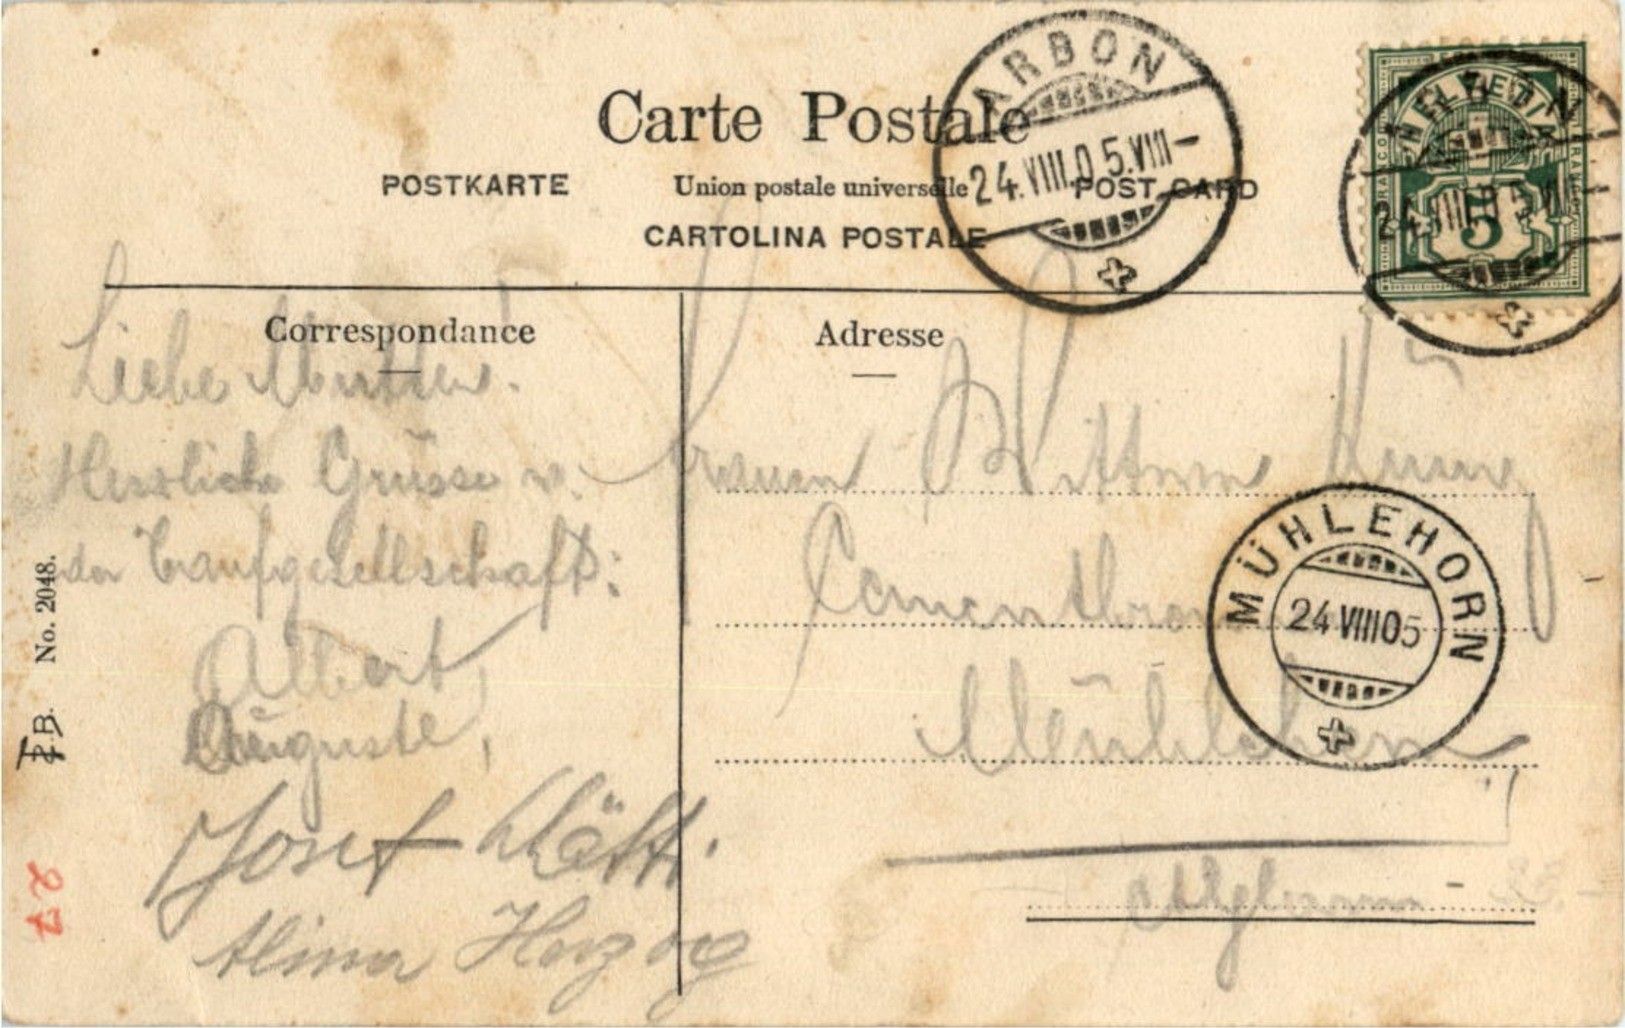 Carte Postale
POSTKARTE Union postale universelle POST CARD
CARTOLINA POSTALE
ARBON
24.VIII.05.VIII-
HELVETIA
5
24.VIII.05.VIII-
Correspondance
Liebe Mutter.
Herzliche Grüsse v.
der Taufgesellschaft:
Albert
Auguste,
Josef
Alina Herzog
Adresse
Frauen Wittwe
Mühlehorn
MÜHLEHORN
24 VIII 05
No. 2048.
27